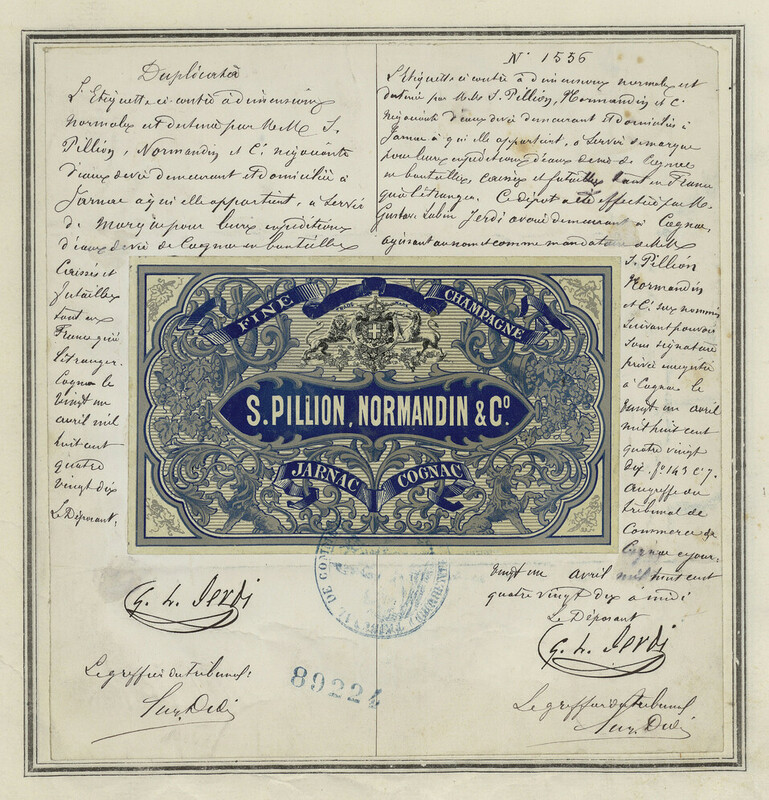 Duplicata
L'Etiquette ci-contre à dimensions
normales est destinée par MM. S.
Pillion, Normandin et Cie négociants
d'eaux de vie demeurant et domiciliés à
Jarnac à qui elle appartient, à servir
de marque pour leurs expéditions
d'eaux de vie de Cognac en bouteilles
Caisses et
futailles
tant en
France qu'à
l'étranger.
Cognac le
vingt un
avril mil
huit cent
quatre
vingt dix
Le Déposant:
G. L. Jerdi
Le greffier du Tribunal:
N° 1556
L'Etiquette ci contre à dimensions normales est
destinée par MM. S. Pillion, Normandin et Cie
négociants d'eaux de vie demeurant et domiciliés à
Jarnac à qui elle appartient, à servir de marque
pour leurs expéditions d'eaux de vie de Cognac
en bouteilles, caisses et futailles tant en France
qu'à l'étranger. Ce dépôt a été effectué par M.
Gustave Lubin Jerdi avoué demeurant à Cognac,
agissant au nom et comme mandataire de MM
S. Pillion
Normandin
et Cie sus nommés
suivant pouvoir
sous signature
privé enregistré
à Cognac le
vingt un avril
mil huit cent
quatre vingt
dix. f° 143 C 7.
au greffe du
tribunal de
Commerce de
Cognac ce jour
vingt un avril mil huit cent
quatre vingt dix à midi
Le Déposant
G. L. Jerdi
Le greffier du tribunal
FINE CHAMPAGNE
TRADE MARK
S. PILLION, NORMANDIN & Cº
JARNAC COGNAC
TRIBUNAL DE COMMERCE
89224